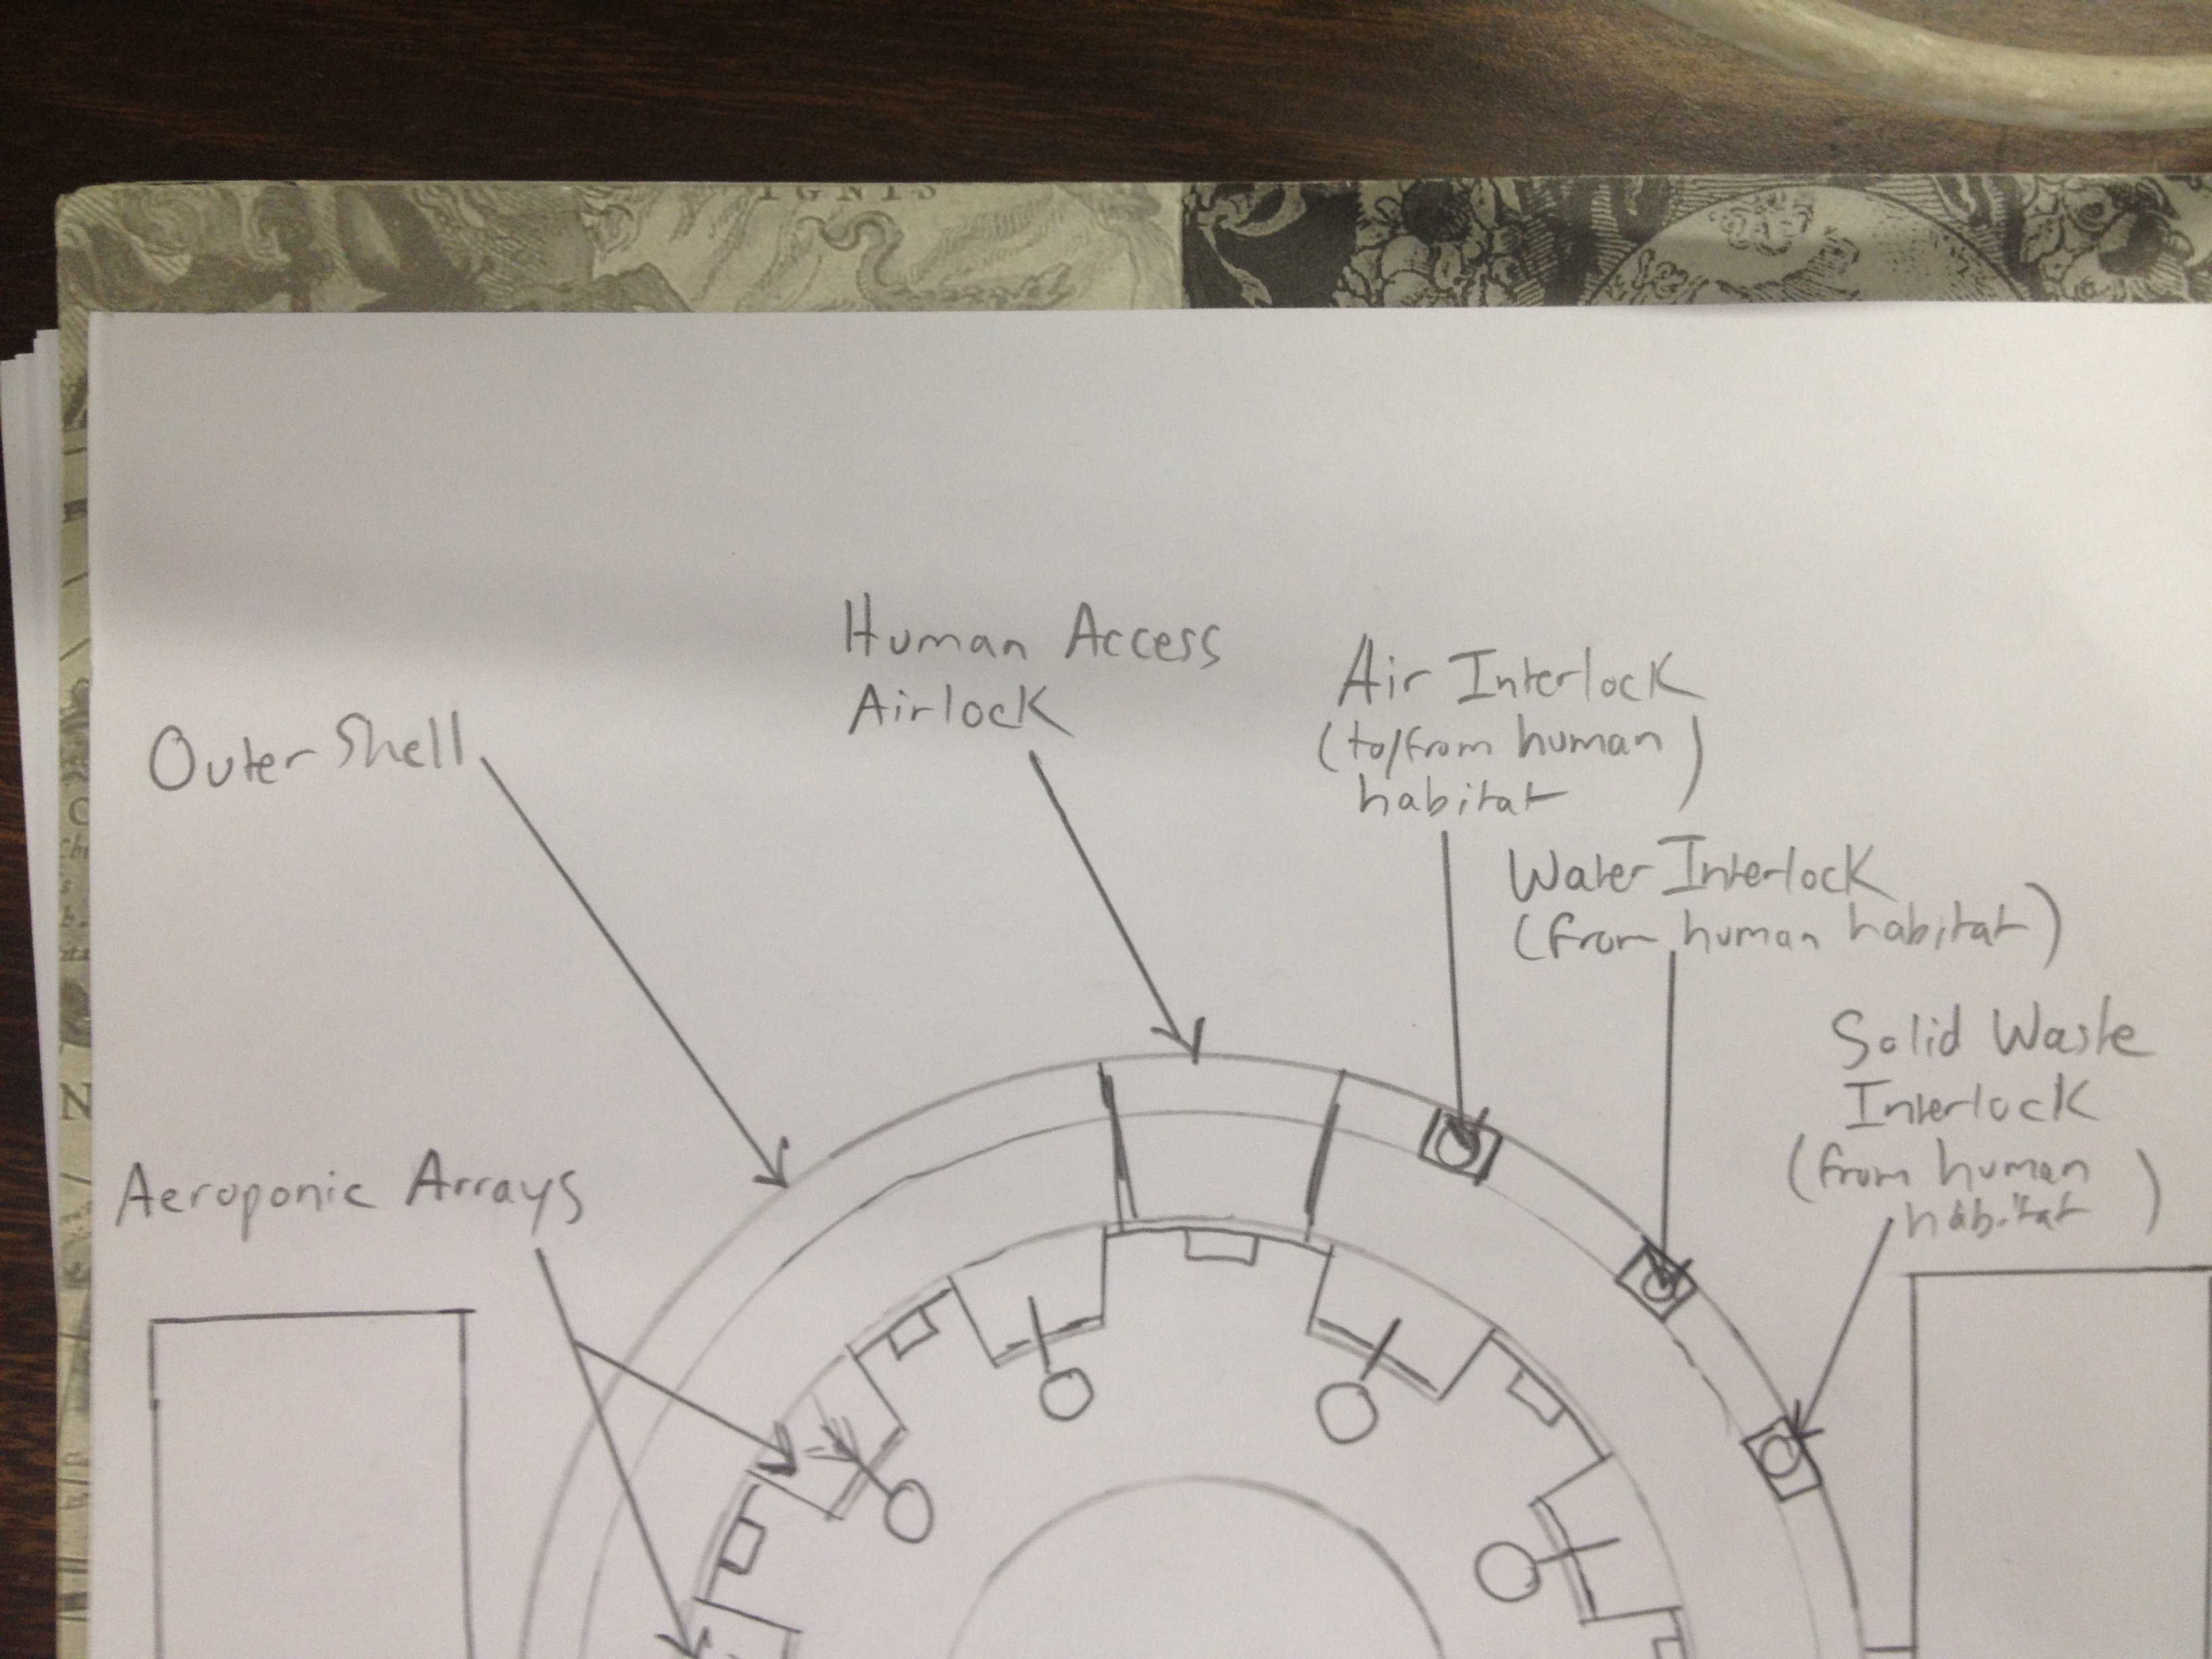 IGNIS
Human Access
Airlock
Air Interlock
(to/from human)
habitat
Outer Shell
Water Interlock
(from human habitat)
Solid Waste
Interlock
(from human
habitat)
Aeroponic Arrays
N